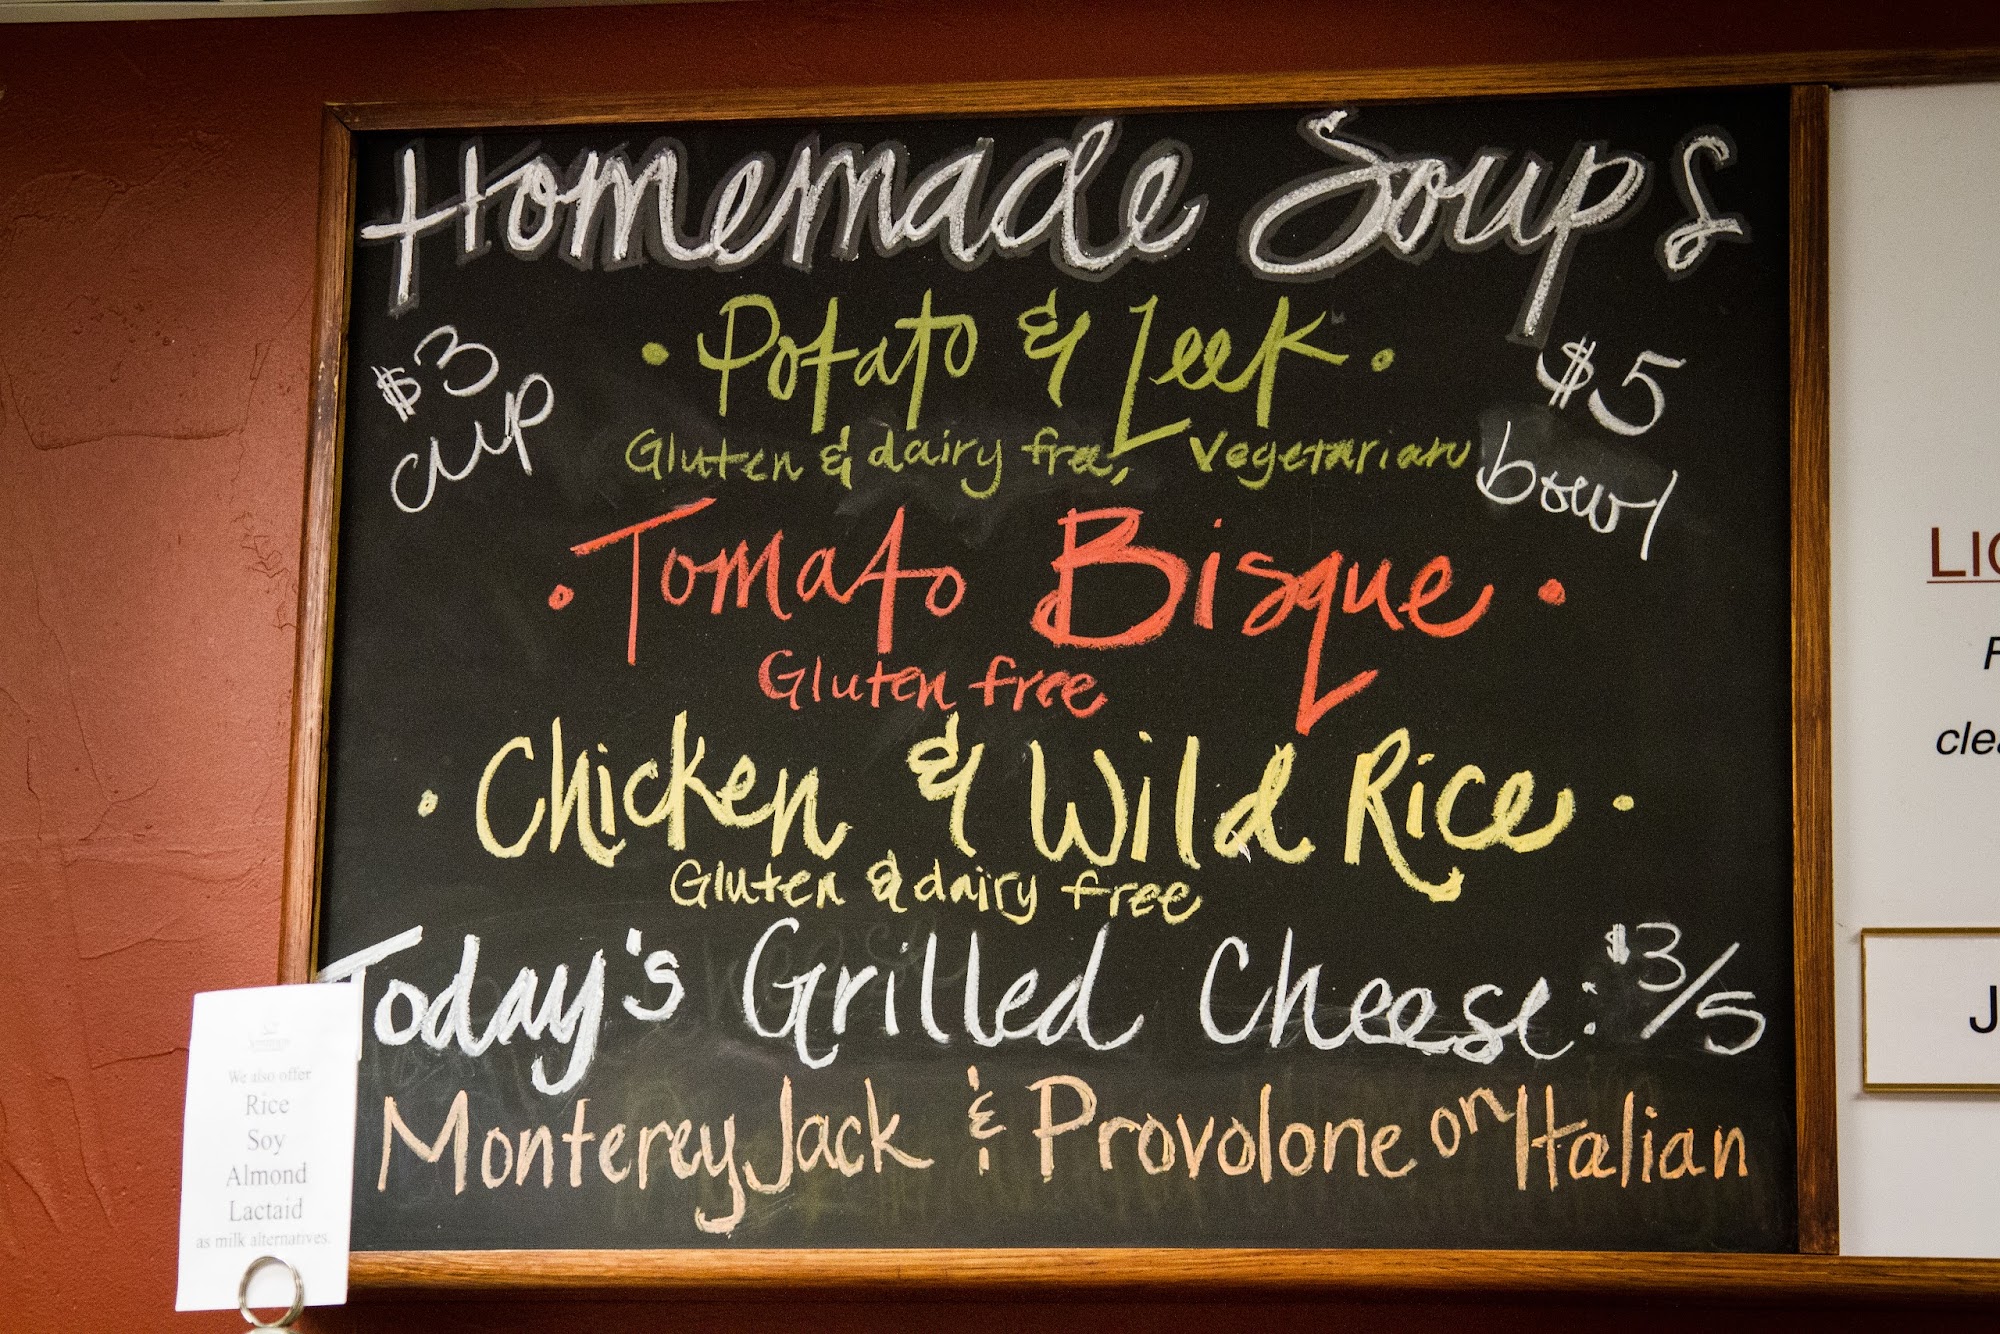 Homemade Soups
$3 cup
$5 bowl
• Potato & Leek •
Gluten & dairy free, Vegetarian
• Tomato Bisque •
Gluten free
• Chicken & Wild Rice •
Gluten & dairy free
Today's Grilled Cheese: $3/5
Monterey Jack & Provolone on Italian
We also offer
Rice
Soy
Almond
Lactaid
as milk alternatives.